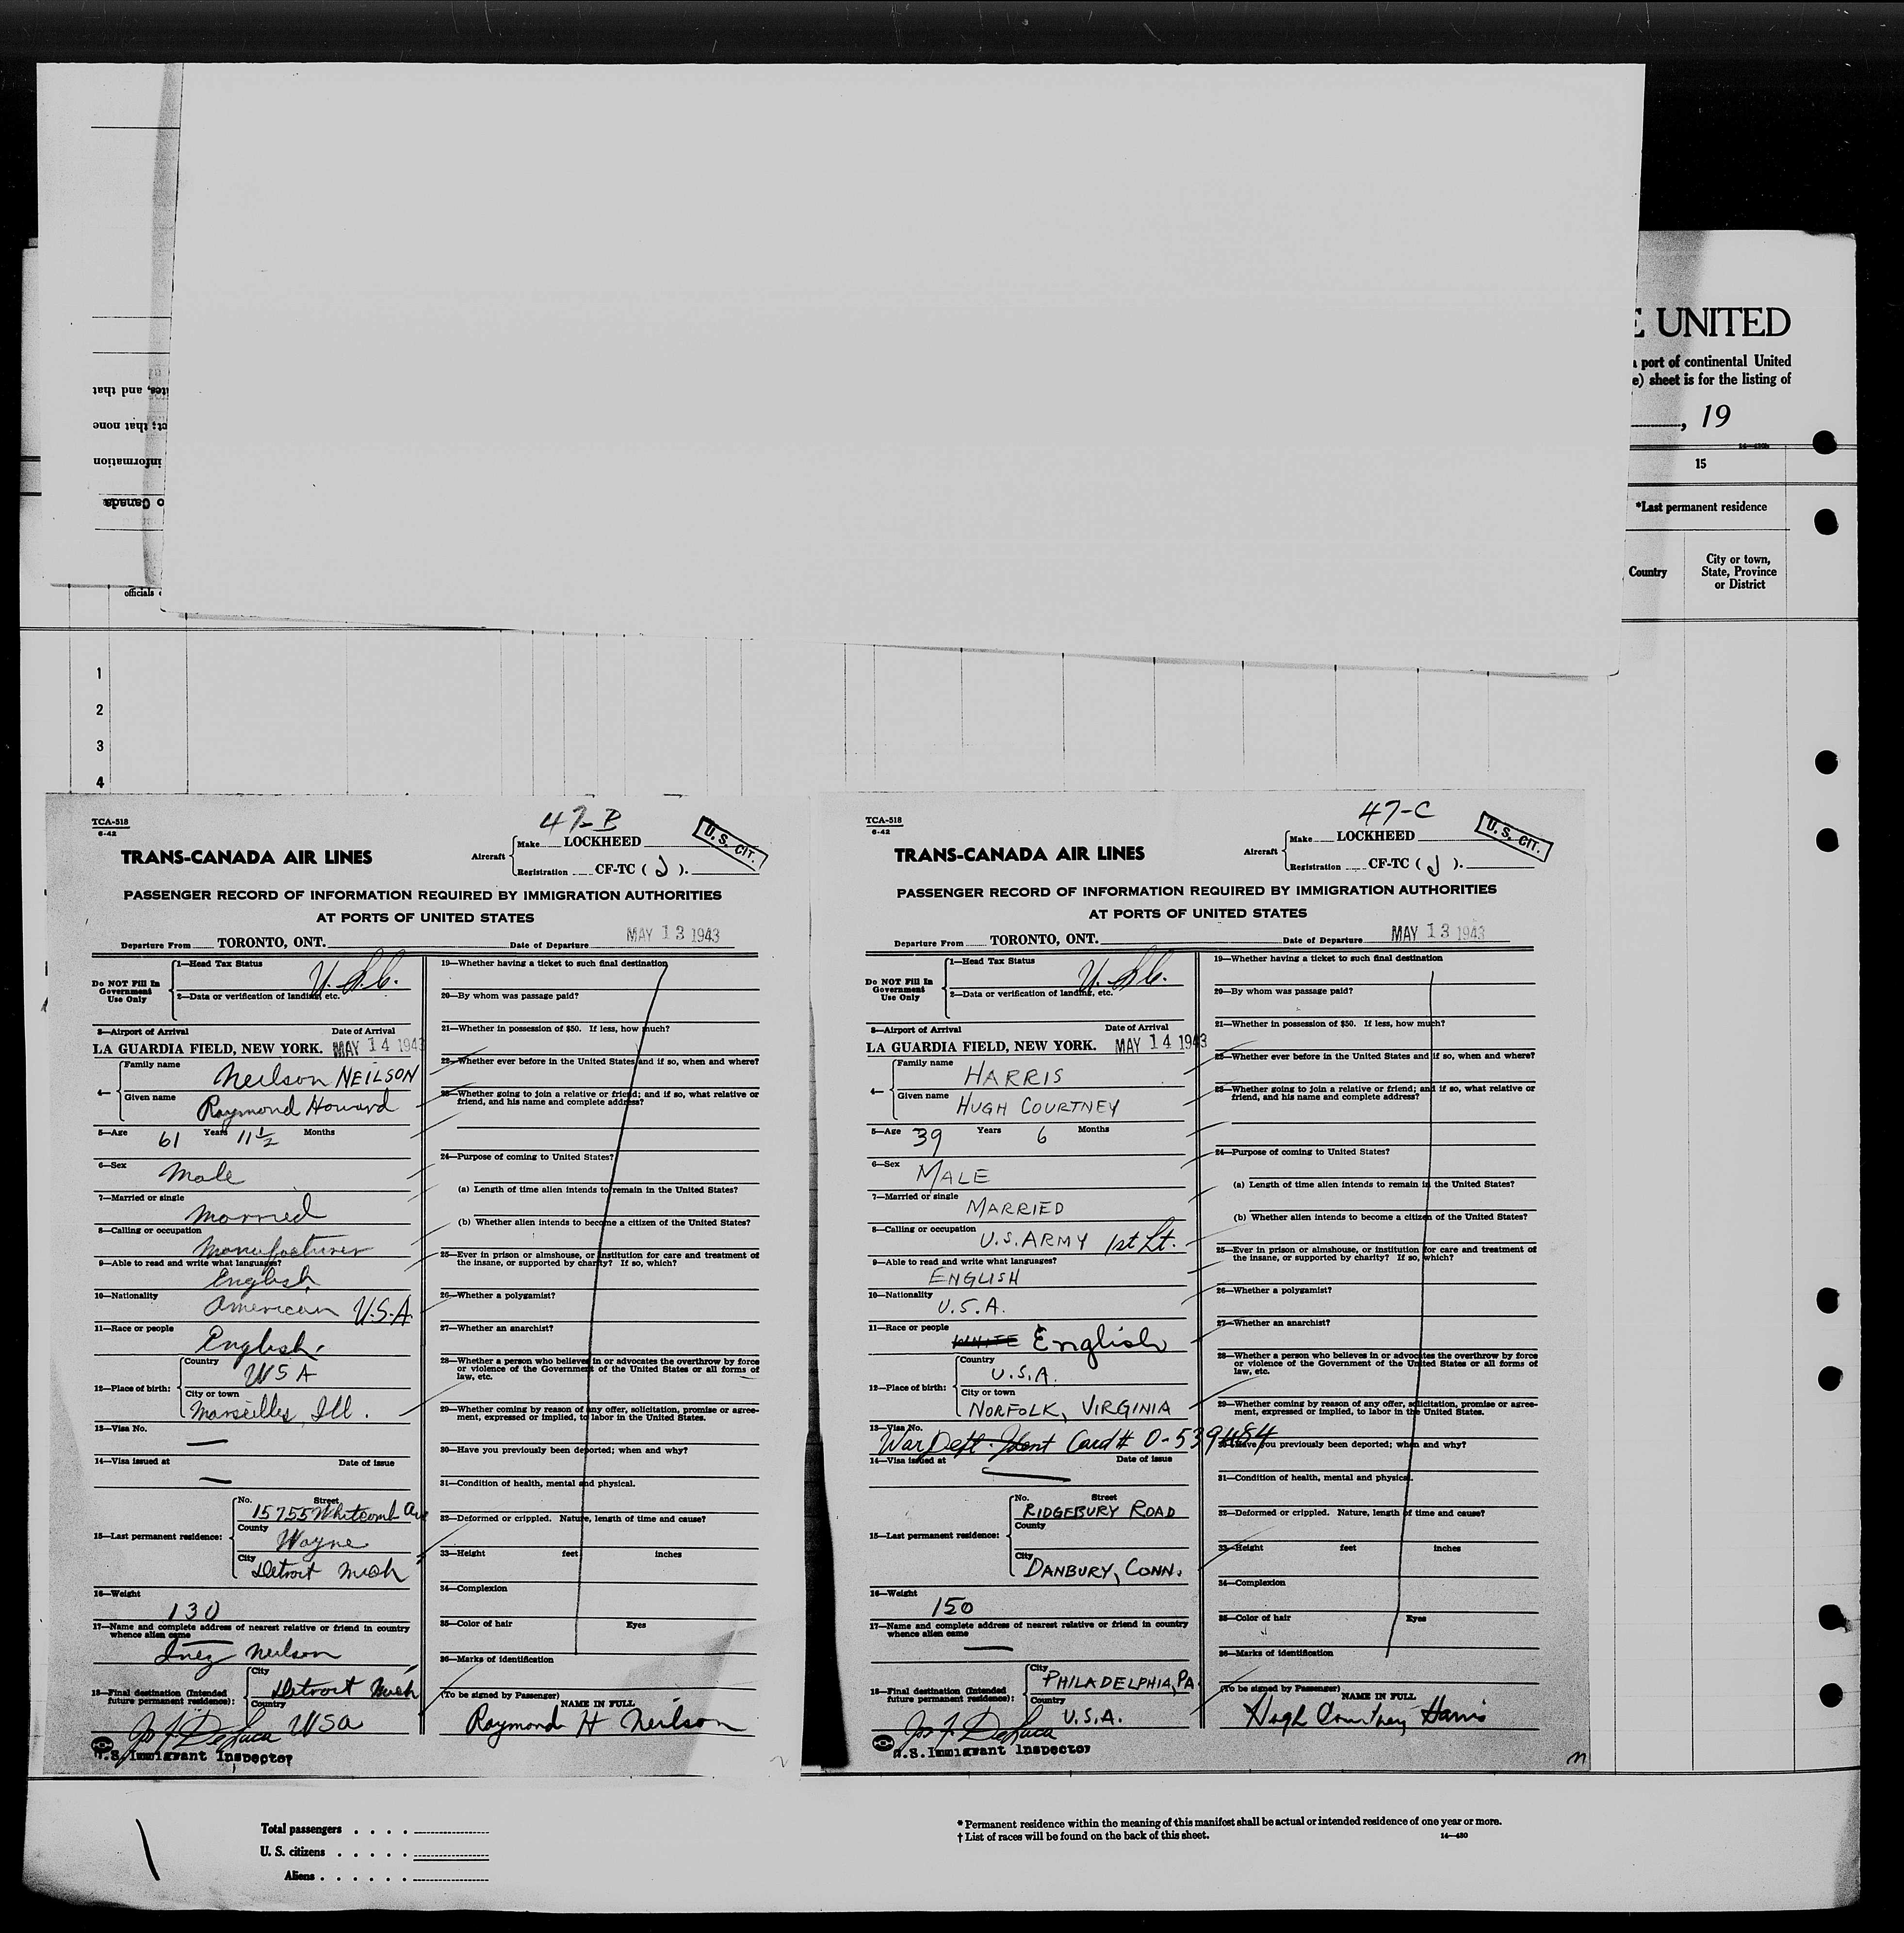 E UNITED
a port of continental United
e) sheet is for the listing of
, 19
14—430b
15
*Last permanent residence
Country
City or town,
State, Province
or District
tes, and that
ct; that none
information
o Canada
officials
1
2
3
4
47-B
TCA-518
6-42
TRANS-CANADA AIR LINES
Aircraft
Make LOCKHEED
Registration CF-TC ( J ).
U. S. CIT.
PASSENGER RECORD OF INFORMATION REQUIRED BY IMMIGRATION AUTHORITIES
AT PORTS OF UNITED STATES
Departure From TORONTO, ONT. Date of Departure MAY 13 1943
Do NOT Fill In
Government
Use Only
1—Head Tax Status
U.S.C.
2—Data or verification of landing, etc.
3—Airport of Arrival Date of Arrival
LA GUARDIA FIELD, NEW YORK. MAY 14 1943
4—
Family name
Neilson NEILSON
Given name
Raymond Howard
5—Age 61 Years 11½ Months
6—Sex
Male
7—Married or single
Married
8—Calling or occupation
Manufacturer
9—Able to read and write what languages?
English
10—Nationality
American U.S.A.
11—Race or people
English.
12—Place of birth:
Country
USA
City or town
Marseilles, Ill.
13—Visa No.
—
14—Visa issued at Date of issue
—
15—Last permanent residence:
No. Street
15755 Whitcomb Ave
County
Wayne
City
Detroit Mich
16—Weight
130
17—Name and complete address of nearest relative or friend in country
whence alien came
Inez Neilson
18—Final destination (Intended
future permanent residence):
City
Detroit Mich
Country
USA
Jos F. DeLuca
U.S. Immigrant Inspector
19—Whether having a ticket to such final destination
20—By whom was passage paid?
21—Whether in possession of $50. If less, how much?
22—Whether ever before in the United States and if so, when and where?
23—Whether going to join a relative or friend; and if so, what relative or
friend, and his name and complete address?
24—Purpose of coming to United States?
(a) Length of time alien intends to remain in the United States?
(b) Whether alien intends to become a citizen of the United States?
25—Ever in prison or almshouse, or institution for care and treatment of
the insane, or supported by charity? If so, which?
26—Whether a polygamist?
27—Whether an anarchist?
28—Whether a person who believes in or advocates the overthrow by force
or violence of the Government of the United States or all forms of
law, etc.
29—Whether coming by reason of any offer, solicitation, promise or agree-
ment, expressed or implied, to labor in the United States.
30—Have you previously been deported; when and why?
31—Condition of health, mental and physical.
32—Deformed or crippled. Nature, length of time and cause?
33—Height feet inches
34—Complexion
35—Color of hair Eyes
36—Marks of identification
(To be signed by Passenger)
NAME IN FULL
Raymond H Neilson
47-C
TCA-518
6-42
TRANS-CANADA AIR LINES
Aircraft
Make LOCKHEED
Registration CF-TC ( J ).
U. S. CIT.
PASSENGER RECORD OF INFORMATION REQUIRED BY IMMIGRATION AUTHORITIES
AT PORTS OF UNITED STATES
Departure From TORONTO, ONT. Date of Departure MAY 13 1943
Do NOT Fill In
Government
Use Only
1—Head Tax Status
U.S.C.
2—Data or verification of landing, etc.
3—Airport of Arrival Date of Arrival
LA GUARDIA FIELD, NEW YORK. MAY 14 1943
4—
Family name
HARRIS
Given name
HUGH COURTNEY
5—Age 39 Years 6 Months
6—Sex
MALE
7—Married or single
MARRIED
8—Calling or occupation
U.S. ARMY 1st Lt.
9—Able to read and write what languages?
ENGLISH
10—Nationality
U.S.A.
11—Race or people
WHITE English
12—Place of birth:
Country
U.S.A.
City or town
NORFOLK, VIRGINIA
13—Visa No.
War Dept. Ident Card # O-539484
14—Visa issued at Date of issue
—
15—Last permanent residence:
No. Street
RIDGEBURY ROAD
County
City
DANBURY, CONN.
16—Weight
150
17—Name and complete address of nearest relative or friend in country
whence alien came
—
18—Final destination (Intended
future permanent residence):
City
PHILADELPHIA, PA.
Country
U.S.A.
Jos F. DeLuca
U.S. Immigrant Inspector
19—Whether having a ticket to such final destination
20—By whom was passage paid?
21—Whether in possession of $50. If less, how much?
22—Whether ever before in the United States and if so, when and where?
23—Whether going to join a relative or friend; and if so, what relative or
friend, and his name and complete address?
24—Purpose of coming to United States?
(a) Length of time alien intends to remain in the United States?
(b) Whether alien intends to become a citizen of the United States?
25—Ever in prison or almshouse, or institution for care and treatment of
the insane, or supported by charity? If so, which?
26—Whether a polygamist?
27—Whether an anarchist?
28—Whether a person who believes in or advocates the overthrow by force
or violence of the Government of the United States or all forms of
law, etc.
29—Whether coming by reason of any offer, solicitation, promise or agree-
ment, expressed or implied, to labor in the United States.
30—Have you previously been deported; when and why?
31—Condition of health, mental and physical.
32—Deformed or crippled. Nature, length of time and cause?
33—Height feet inches
34—Complexion
35—Color of hair Eyes
36—Marks of identification
(To be signed by Passenger)
NAME IN FULL
Hugh Courtney Harris
n
Total passengers . . . .
U. S. citizens . . . . .
Aliens . . . . . .
* Permanent residence within the meaning of this manifest shall be actual or intended residence of one year or more.
† List of races will be found on the back of this sheet.
14—430